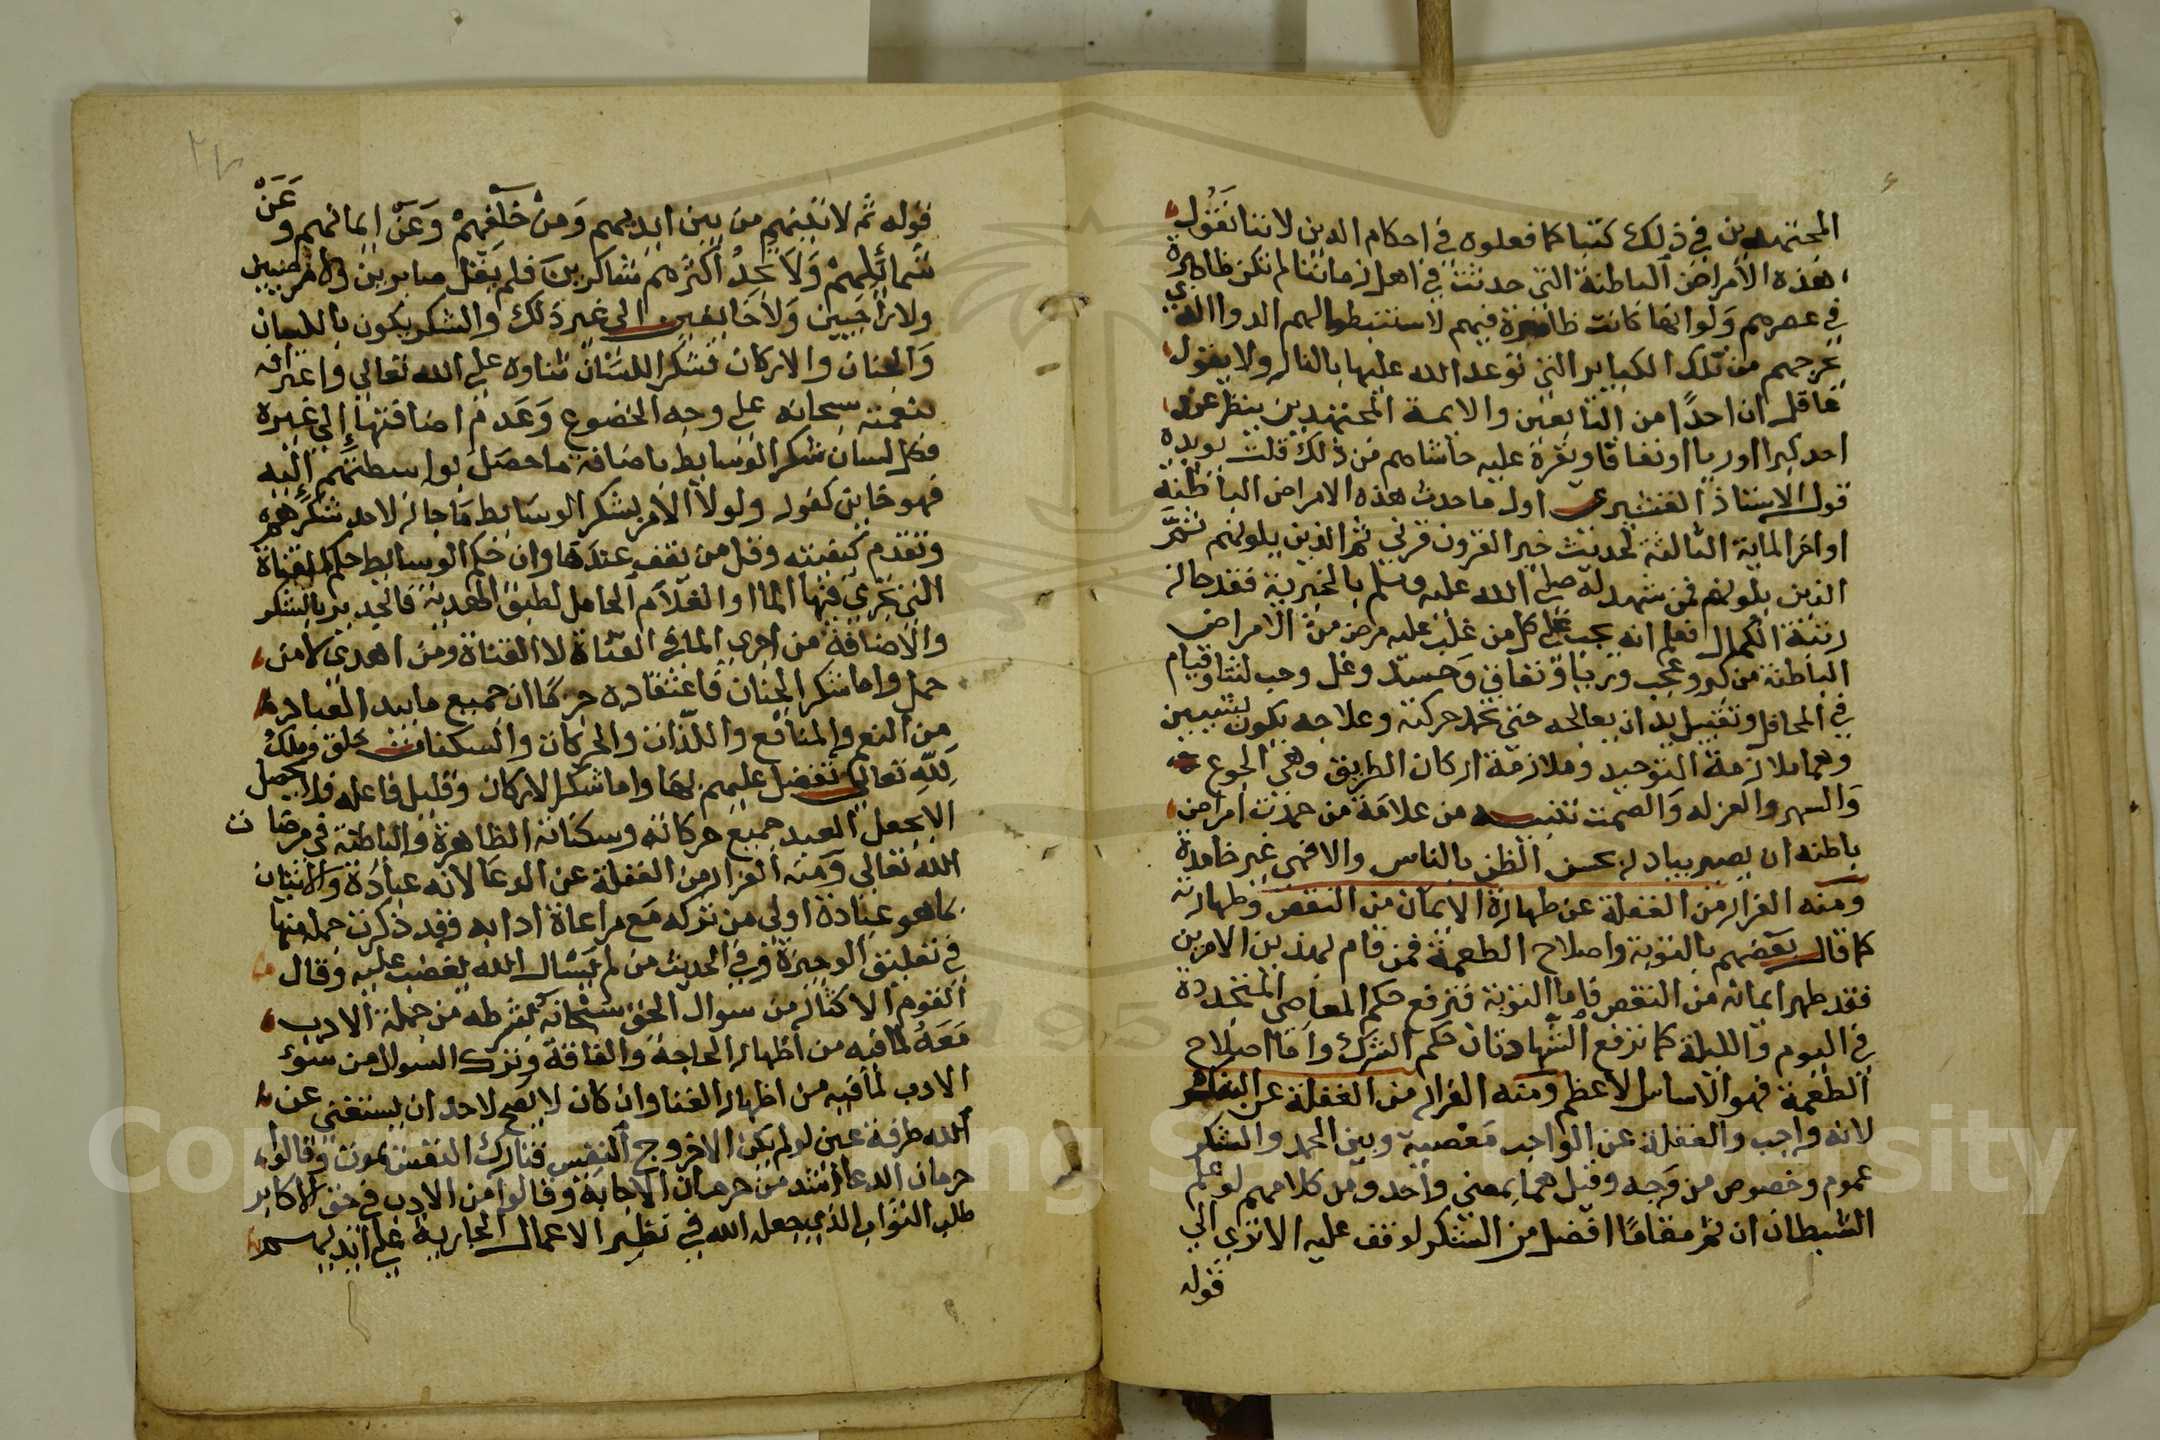 المجتهدين في ذلك كتبا كما فعلوه في احكام الدين لاننا نقول
هذه الامراض الباطنة التي حدثت في اهل زماننا لم تكن ظاهرة
في عصرهم ولو انها كانت ظاهرة فيهم لاستنبطوا لهم الدوا الذي
يخرجهم من تلك الكباير التي توعد الله عليها بالنار ولا يقول
عاقل ان احدا من التابعين والايمة المجتهدين ينظر عند
احد كبرا او ريا او نفاقا ويقره عليه حاشاهم من ذلك قلت يويده
قول الاستاذ القشيري اول ما حدث هذه الامراض الباطنة
اواخر الماية الثالثة لحديث خير القرون قرني ثم الذين يلونهم ثم
الذين يلونهم فمن شهد له صلى الله عليه وسلم بالخيرية فقد حاز
رتبة الكمال فعلم انه يجب على كل من غلب عليه مرض من الامراض
الباطنة من كبر وعجب وريا ونفاق وحسد وغل وحب لثنا وقيام
في المحافل وتقبيل يد ان يعالجه حتى تخمد حركته وعلاجه يكون بشيين
وهما ملازمة التوحيد وملازمة اركان الطريق وهي الجوع
والسهر والعزله والصمت تنبيه من علامة من خمدت امراض
باطنه ان يصير يبادر بحسن الظن بالناس والا فهي غير خامدة
ومنه الفرار من الغفلة عن طهارة الايمان من النقص وطهارته
كما قال بعضهم بالتوبة واصلاح الطعمة فمن قام بهذين الامرين
فقد طهر ايمانه من النقص فاما التوبة فترفع حكم المعاصي المتجددة
في اليوم والليلة كما ترفع الشهادتان حكم الشرك واما اصلاح
الطعمة فهو الاساس الاعظم ومنه الفرار من الغفلة عن الشكر
لانه واجب والغفلة عن الواجب معصية وبين الحمد والشكر
عموم وخصوص من وجه وقيل هما بمعنى واحد ومن كلامهم لو علم
الشيطان ان ثم مقاما افضل من الشكر لوقف عليه الا ترى الى
قوله
قوله ثم لاتينهم من بين ايديهم ومن خلفهم وعن ايمانهم وعن
شمائلهم ولا تجد اكثرهم شاكرين فلم يقل صابرين ولا
ولا راجيين ولا خايفين الى غير ذلك والشكر يكون باللسان
والجنان والاركان فشكر اللسان ثناوه على الله تعالى واعترافه
بنعمته سبحانه على وجه الخضوع وعدم اضافتها الى غيره
وكل لسان شكر الوسايط باضافة ما حصل بواسطتهم اليه
فهو خاين كفور ولولا الامر بشكر الوسايط ما جاز لاحد شكرهم
وتقدم كيفيته وقل من يقف عندها وان حكم الوسايط حكم القناة
التي يجري فيها الما او الغلام الحامل لطبق الهدية فالجدير بالشكر
والاضافة من اجرى الما في القناة لا القناة ومن اهدى لا من
حمل واما شكر الجنان فاعتقاده جزما ان جميع ما بيد العباد
من النعم والمنافع واللذات والحركات والسكنات خلق وملك
لله تعالى تفضل عليهم بها واما شكر الاركان وقليل فاعله فلا يحصل
الا بجعل العبد جميع حركاته وسكناته الظاهرة والباطنة في مرضات
الله تعالى ومنه الفرار من الغفلة عن الدعا لانه عبادة والاتيان
بما هو عبادة اولى من تركه مع مراعاة ادابه وقد ذكرت جملة منها
في تعليق الوجيزة وفي الحديث من لم يسال الله يغضب عليه وقال
القوم الاكثار من سوال الحق سبحانه بشرطه من جملة الادب
معه لما فيه من اظهار الحاجة والفاقة وترك السوال من سوء
الادب لما فيه من اظهار الغنا وان كان لا يصح لاحد ان يستغني عن
الله طرفة عين لو لم يكن الا خروج النفس فتارك النفس يموت وقالوا
حرمان الدعا اشد من حرمان الاجابة وقالوا من الادب في حق الاكابر
طلب الثواب الذي جعل الله في نظير الاعمال الجارية على ايديهم